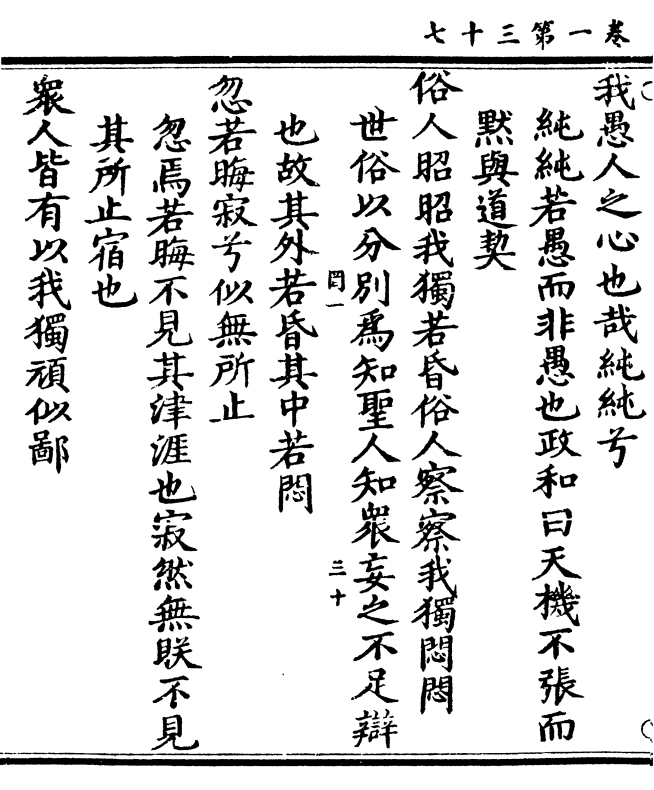 七十三第一卷
我愚人之心也哉純純兮
純純若愚而非愚也政和曰天機不張而
默與道契
俗人昭昭我獨若昏俗人察察我獨悶悶
世俗以分別爲知聖人知衆妄之不足辯
罔一
三十
也故其外若昏其中若悶
忽若晦寂兮似無所止
忽焉若晦不見其津涯也寂然無朕不見
其所止宿也
衆人皆有以我獨頑似鄙